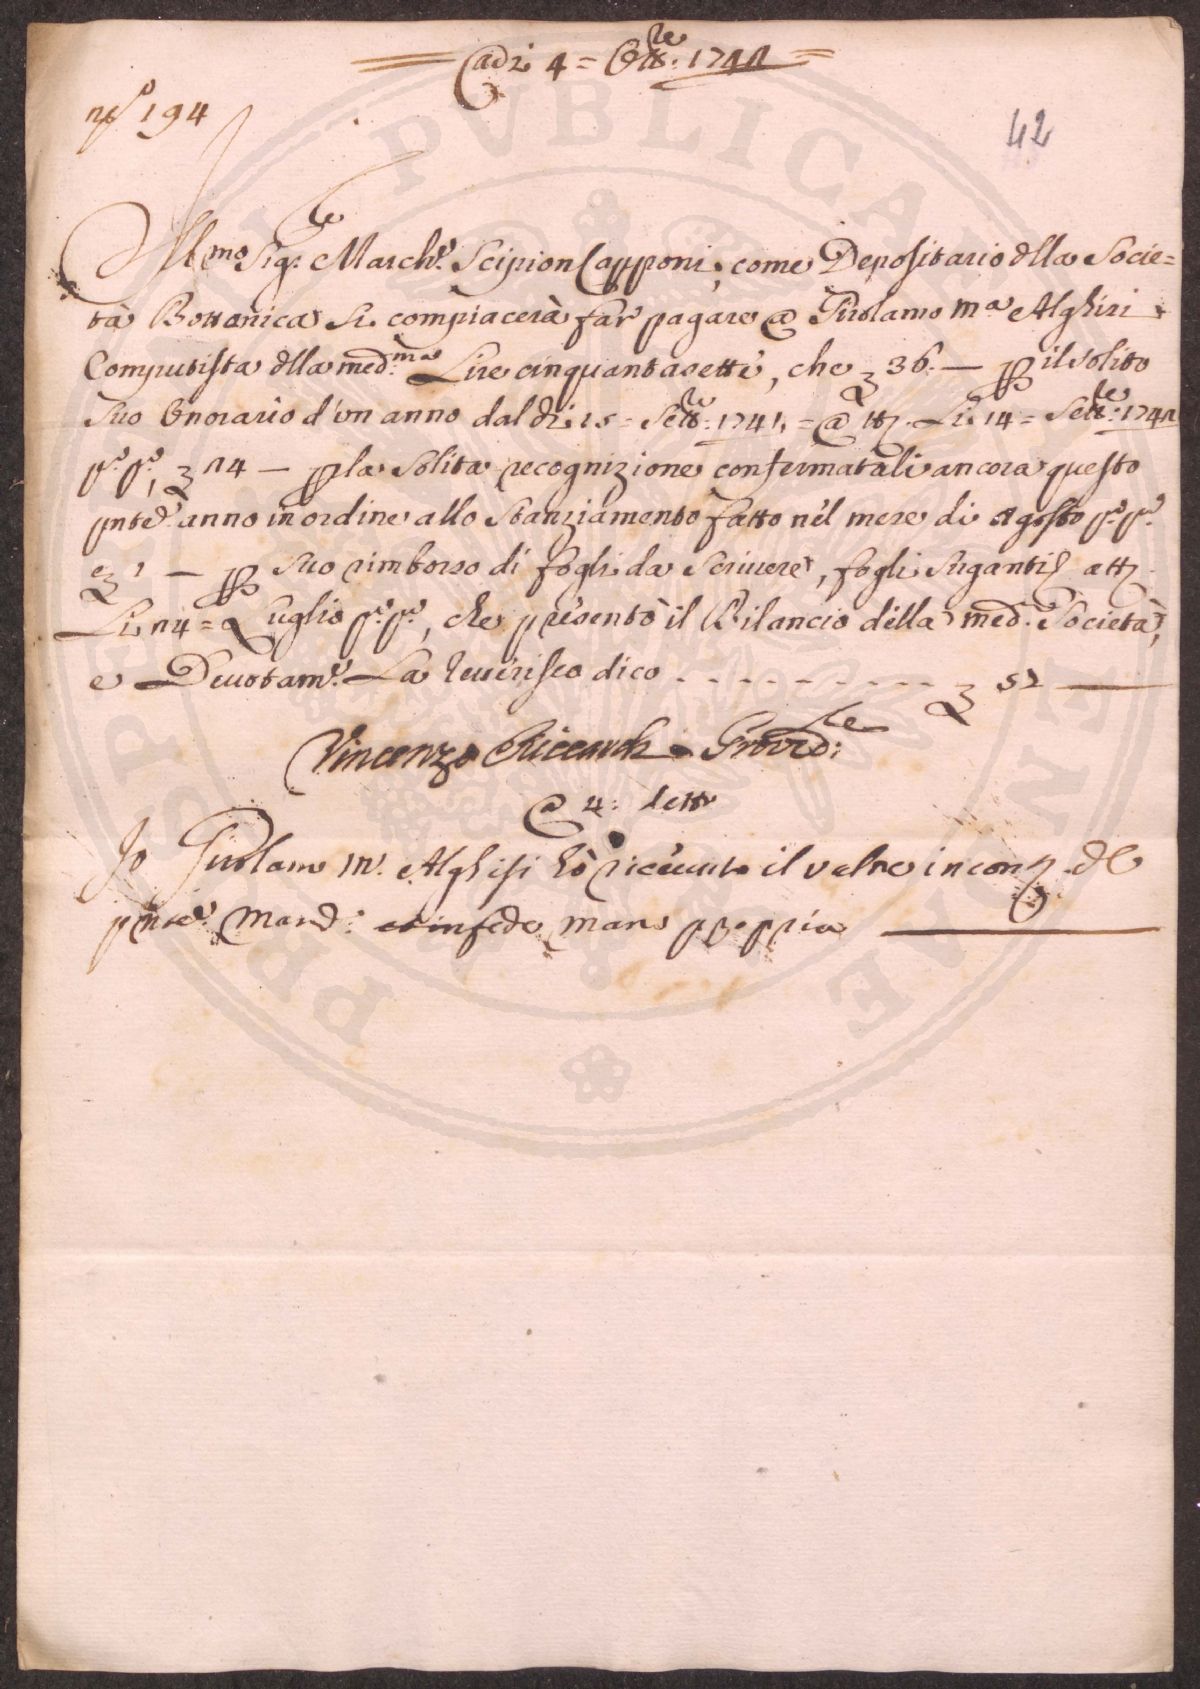 Adi 4 = Ottre: 1742
n.o 194
42
Ill.mo Sig:re March:e Scipion Capponi, come Depositario dlla Socie=
tà Bottanica Si compiacerà far pagare a Girolamo Ma Alghisi
Computista dlla med:ma Lire cinquantasette, che £ 36.— p il solito
suo Onorario d'un anno dal di 15 = Settre: 1741, = a tt° Li 14 = Settre: 1742
p.o p.o, £ 24 — p la solita recognizione confermatali ancora questo
pnte anno in ordine allo Stanziamento fatto nel mese di Agosto p.o p.o
e £ 1 — p suo rimborso di fogli da scriuere, fogli suganti
Li 24 = Luglio p.o p.o, che presentò il Bilancio della med: Società,
e Deuotam:e La reuerisco dico - - - - - - - - - - £ 57 —
Vincenzo Riccardi Provedre:
a 4: detto
Io Girolamo M.a Alghisi hò riceuuto il valore in con del
pnte Mand:o et in fede mano ppria
PVBLICAE